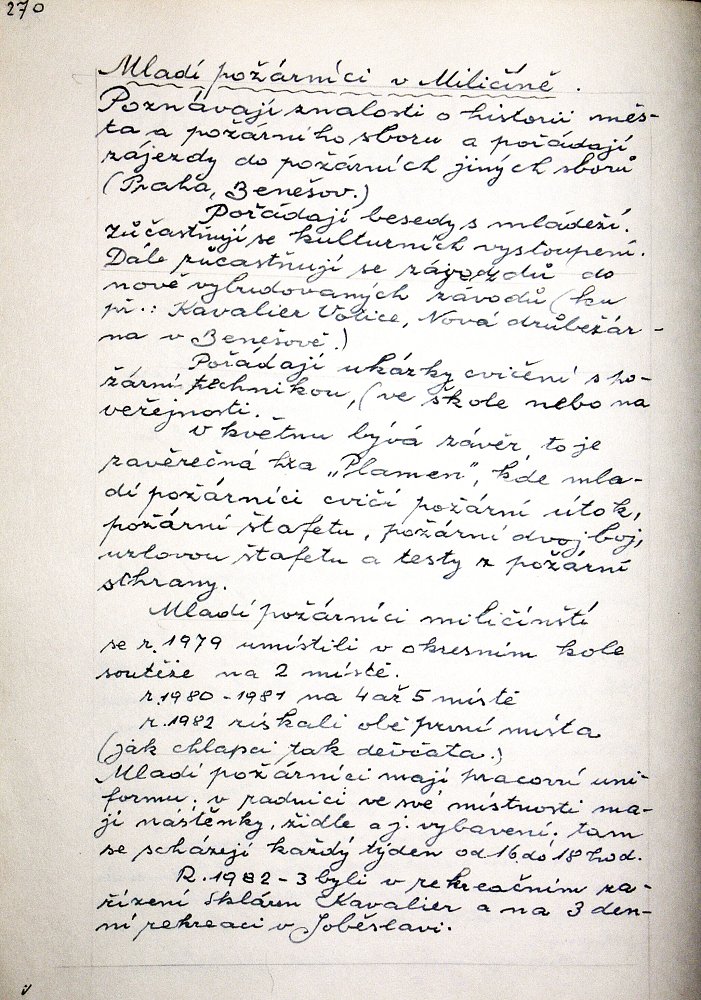 270
Mladí požárníci v Miličíně.
Poznávají znalosti o historii měs-
ta a požárního sboru a pořádají
zájezdy do požárních jiných sborů
(Praha, Benešov.)
Pořádají besedy s mládeží.
Zůčastňují se kulturních vystoupení.
Dále zůčastňují se zájezdů do
nově vybudovaných závodů (ku
př.: Kavalier Votice, Nová drůbežár-
na v Benešově.)
Pořádají ukázky cvičení s po-
žární technikou, (ve škole nebo na
veřejnosti.
V květnu bývá závěr, to je
závěrečná hra „Plamen", kde mla-
dí požárníci cvičí požární útok,
požární štafetu, požární dvojboj,
uzlovou štafetu a testy z požární
ochrany.
Mladí požárníci miličínští
se r. 1979 umístili v okresním kole
soutěže na 2 místě.
r. 1980-1981 na 4 až 5 místě
r. 1982 získali obě první místa
(jak chlapci tak děvčata.)
Mladí požárníci mají pracovní uni-
formu, v radnici ve své místnosti ma-
jí nástěnky, židle a j. vybavení, tam
se scházejí každý týden od 16 do 18 hod.
R. 1982-3 byli v rekreačním za-
řízení skláren Kavalier a na 3 den-
ní rekreaci v Soběslavi.